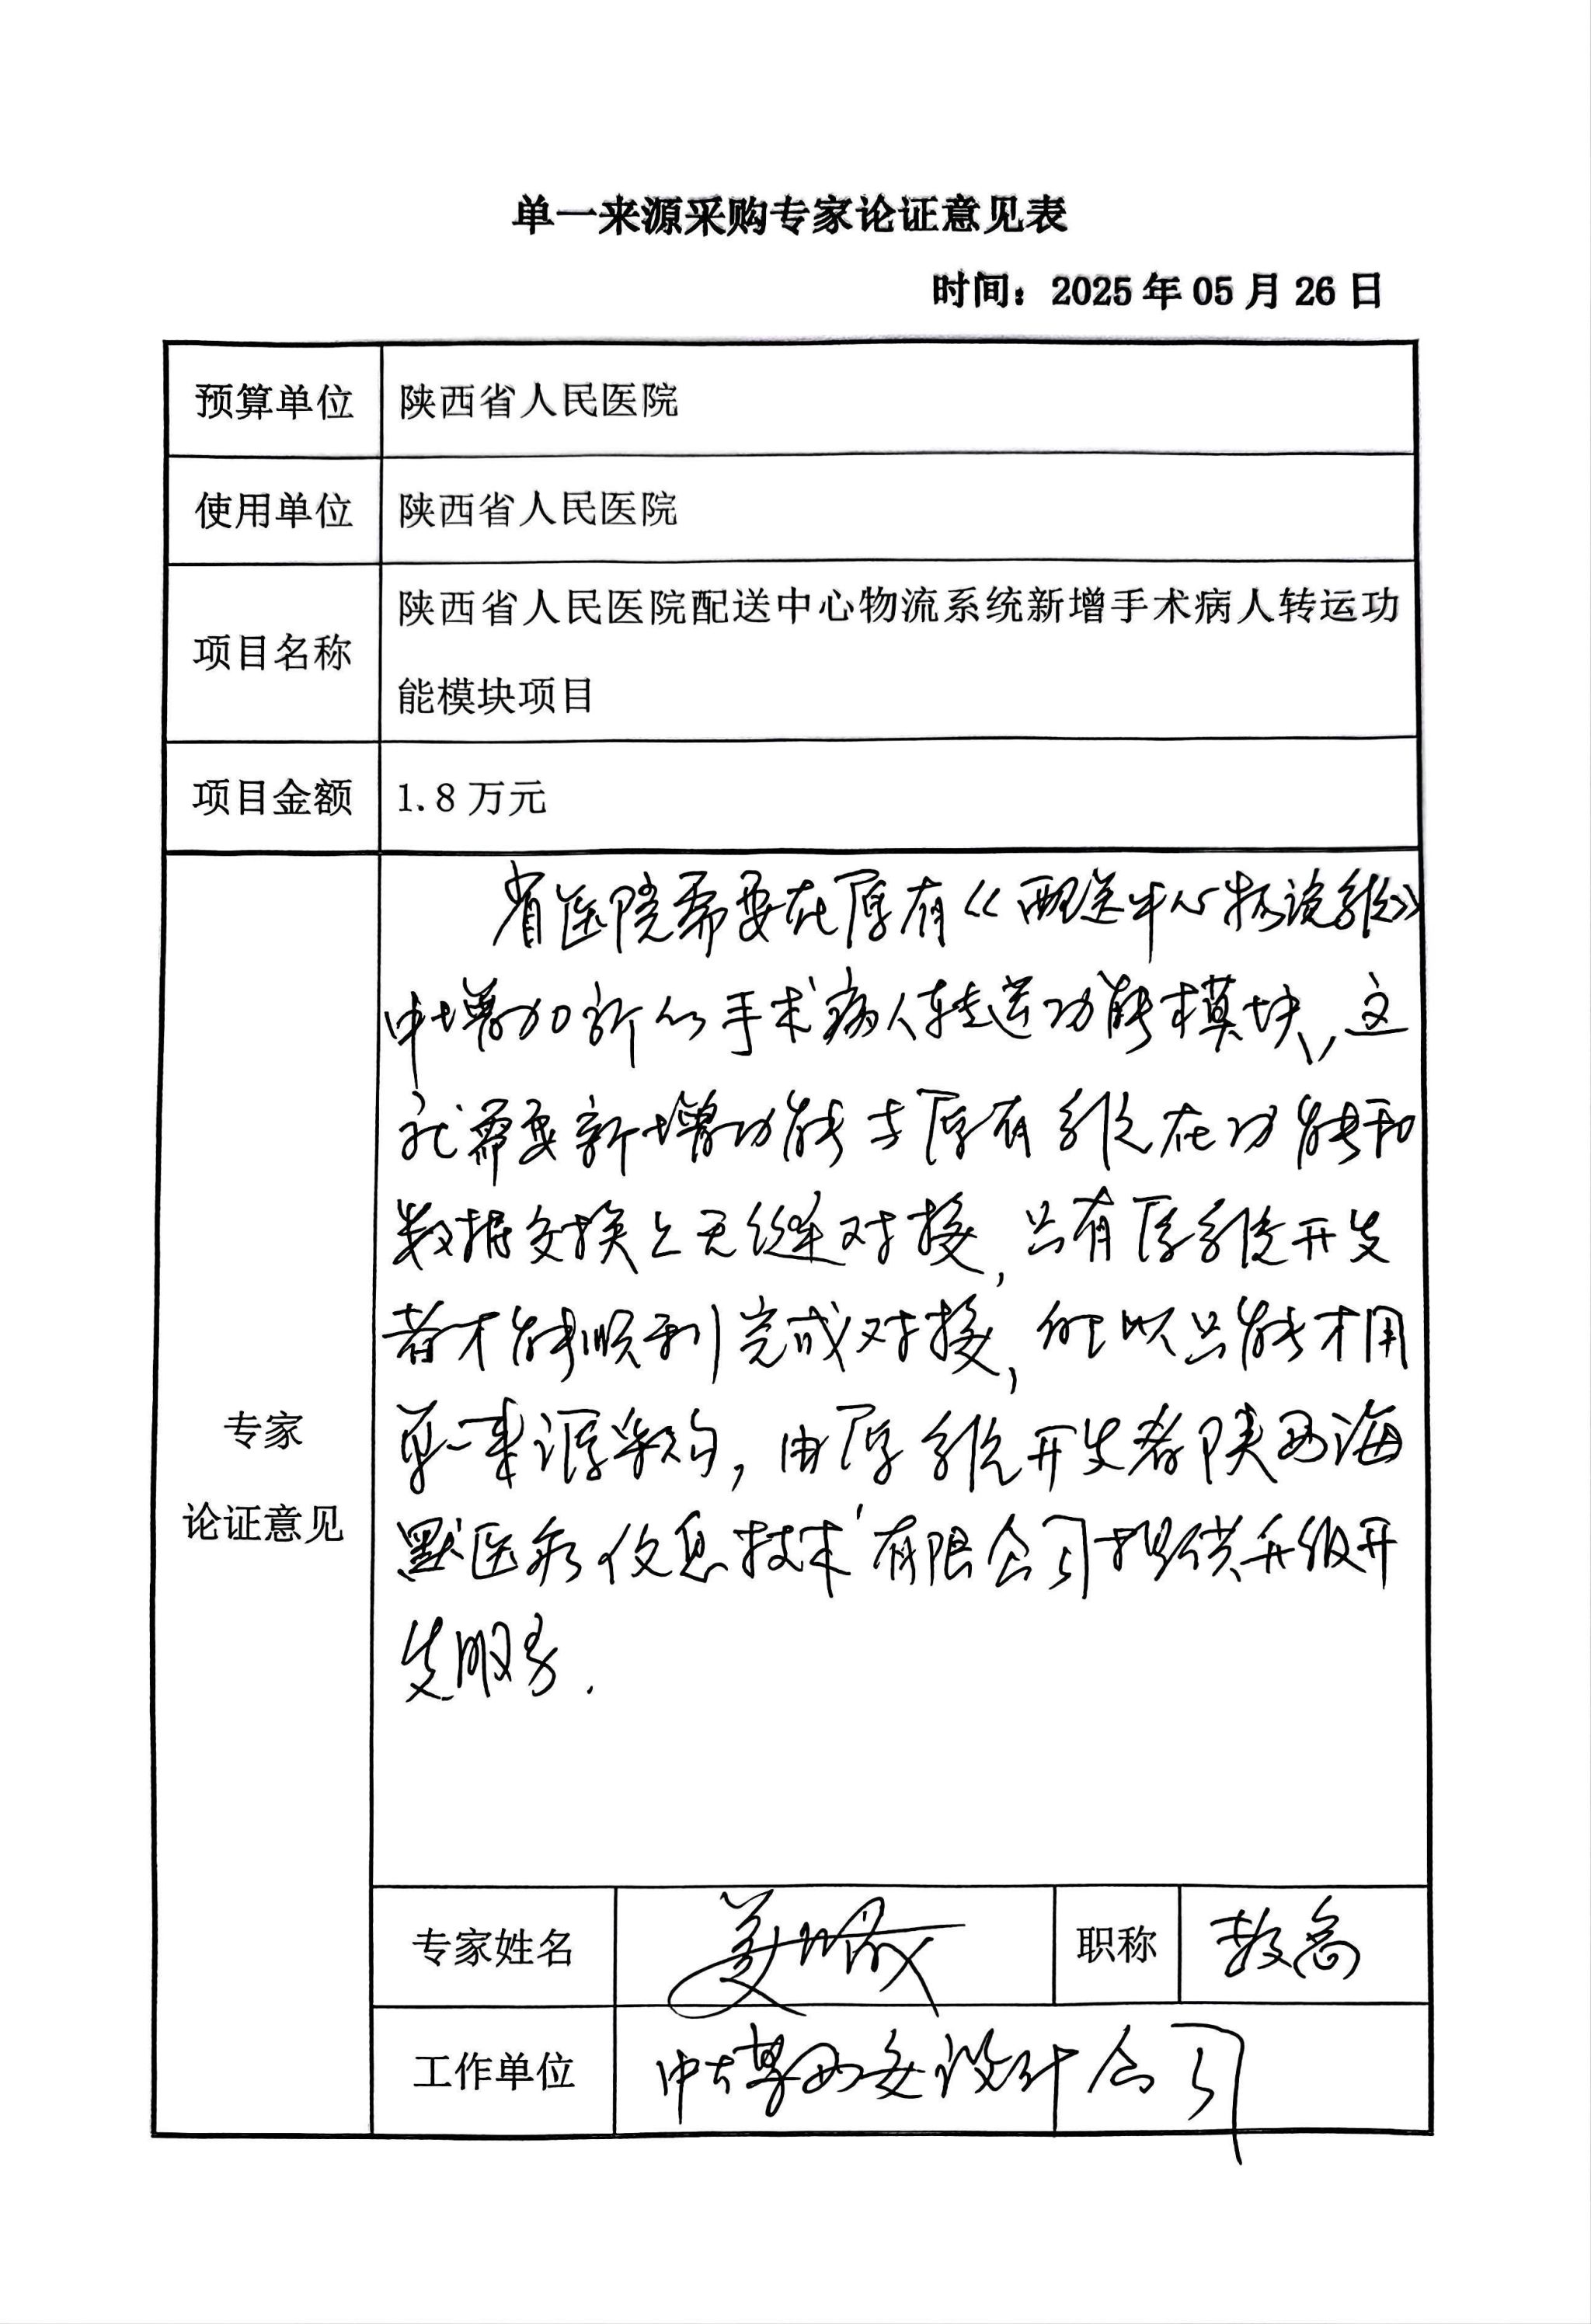 单一来源采购专家论证意见表
时间：2025年05月26日
预算单位 陕西省人民医院
使用单位 陕西省人民医院
项目名称 陕西省人民医院配送中心物流系统新增手术病人转运功
能模块项目
项目金额 1.8万元
专家
论证意见
省医院需要在原有《配送中心物流系统》
中增加新的手术病人转送功能模块，这
就需要新增功能与原有系统在功能和
数据交换上无缝对接，只有原系统开发
者才能顺利完成对接，所以只能采用
单一来源采购，由原系统开发者陕西海
默医疗信息技术有限公司提供升级开
发服务.
专家姓名 职称 教高
工作单位 中大博西安设计公司